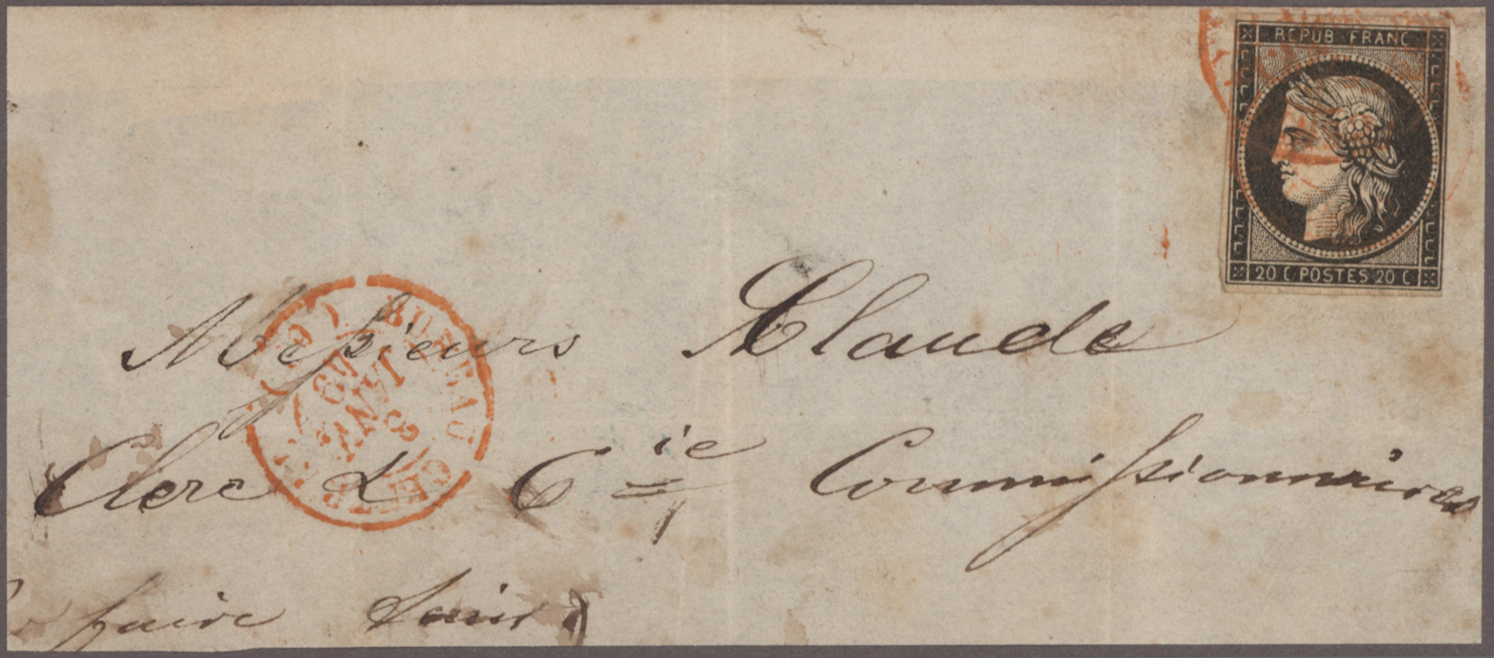 REPUB. FRANC.
20 C. POSTES 20 C.
BUREAU CENTRAL (60)
JANV.
49
Messieurs Claude
Clerc & Cie Commissionnaires
faire